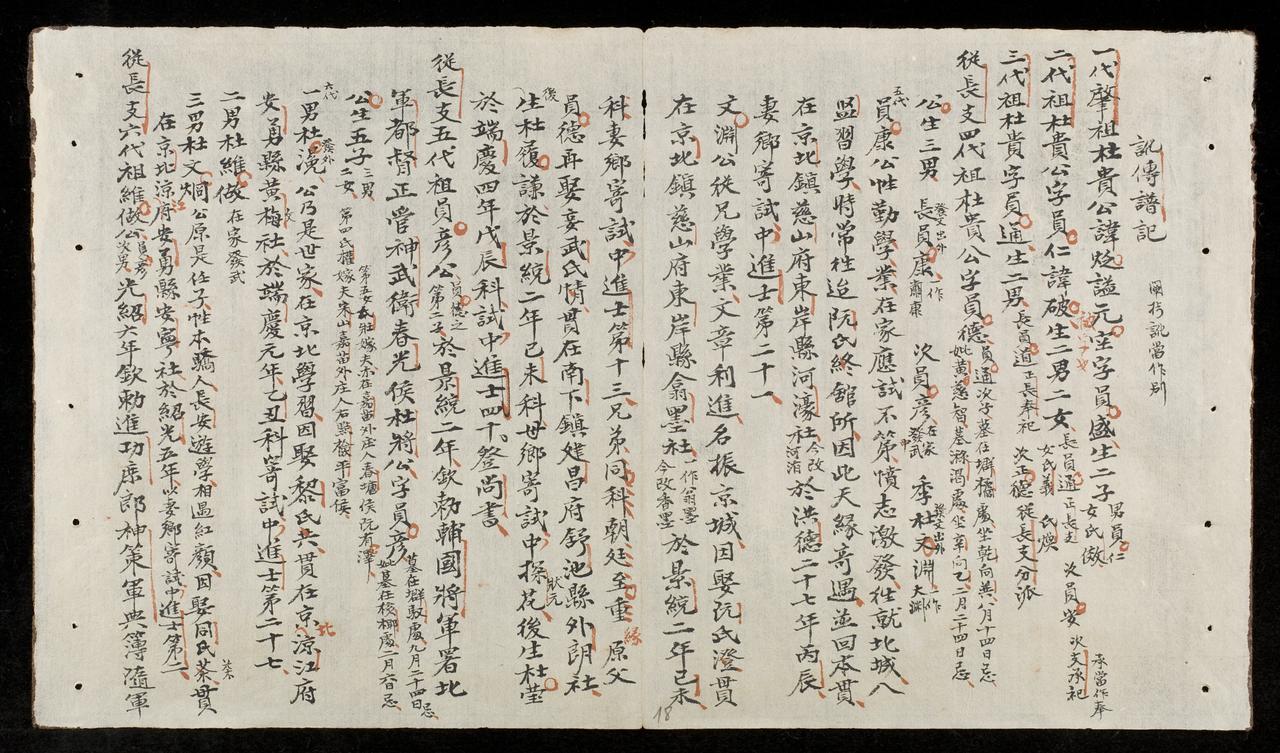 訛傳譜記
一代肇祖杜貴公諱貶謚元宝字員盛生二子 男員仁 女氏儆
二代祖杜貴公字員仁諱破生二男二女 長員通正長支 次員安 次支承祀 女氏義 氏煥
承當作奉
三代祖杜貴字員通生二男 長員道正長奉祀 次正德從長支分派
從長支四代祖杜貴公字員德 員通次子墓在塀橘處坐乾向共八月十四日忌 妣黃慈智墓滌渴處坐辛向乙二月二十四日忌
公生三男 長員康 一作肅康 次員彦 在家發武 季杜文淵 一作大淵
五代
員康公性勤學業在家應試不第憤志激發往就北城八
監習學時常往迨阮氏終館所因此天緣奇遇並回本貫
在京北鎮慈山府東岸縣河濠社 今改河湑 於洪德二十七年丙辰
妻鄉寄試中進士第二十一
文淵公從兄學業文章利進名振京城因娶阮氏澄貫
在京北鎮慈山府東岸縣翁墨社 一作翁墨今改香墨 於景統二年已未
科妻鄉寄試中進士第十三兄弟同科朝廷至重 原父
員德再娶妾武氏情貫在南下鎮建昌府舒池縣外朗社
後生杜履謙於景統二年已未科母鄉寄試中探花後生杜瑩
於端慶四年戊辰科試中進士四十登尚書
從長支五代祖員彦公 員德之第二子 於景統二年欽勅輔國將軍署北
軍都督正管神武衛春光侯杜將公字員彦 墓在群馭處九月二十四日忌 妣墓在核椰處二月六日忌
公生五子 三男二女 第四氏權嫁夫宋山嘉苗外庄人右㸃檢平富侯 第五女氏壯嫁夫亦在嘉苗外庄人春塘侯阮有澤
六代
一男杜浼 發外 公乃是世家在京北學習因娶黎氏共貫在京北諒江府
安勇縣黃梅社於端慶元年乙丑科寄試中進士第二十七
二男杜維做 在家發武
三男杜文烱公原是任子性本驕人長安遊學相遇紅顏因娶同氏菜貫
在京北諒江府安勇縣安寧社於紹光五年以妻鄉寄試中進士第二
從長支六代祖維做公 員彦公次男 光紹六年欽勅進功庶郎神策軍典簿隨軍
18